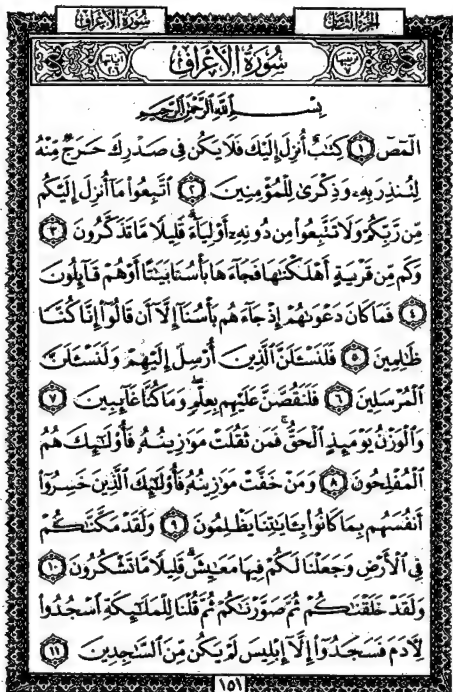 الجُزءُ الثَّامِنُ سُورَةُ الأَعْرَافِ
ترتيبها ٧ سُورَةُ الأَعْرَافِ آياتها ٢٠٦
بِسْمِ ٱللَّهِ ٱلرَّحْمَٰنِ ٱلرَّحِيمِ
الٓمٓصٓ ١ كِتَٰبٌ أُنزِلَ إِلَيْكَ فَلَا يَكُن فِى صَدْرِكَ حَرَجٌ مِّنْهُ
لِتُنذِرَ بِهِۦ وَذِكْرَىٰ لِلْمُؤْمِنِينَ ٢ ٱتَّبِعُوا۟ مَآ أُنزِلَ إِلَيْكُم
مِّن رَّبِّكُمْ وَلَا تَتَّبِعُوا۟ مِن دُونِهِۦٓ أَوْلِيَآءَ ۗ قَلِيلًا مَّا تَذَكَّرُونَ ٣
وَكَم مِّن قَرْيَةٍ أَهْلَكْنَٰهَا فَجَآءَهَا بَأْسُنَا بَيَٰتًا أَوْ هُمْ قَآئِلُونَ
٤ فَمَا كَانَ دَعْوَىٰهُمْ إِذْ جَآءَهُم بَأْسُنَآ إِلَّآ أَن قَالُوٓا۟ إِنَّا كُنَّا
ظَٰلِمِينَ ٥ فَلَنَسْـَٔلَنَّ ٱلَّذِينَ أُرْسِلَ إِلَيْهِمْ وَلَنَسْـَٔلَنَّ
ٱلْمُرْسَلِينَ ٦ فَلَنَقُصَّنَّ عَلَيْهِم بِعِلْمٍ ۖ وَمَا كُنَّا غَآئِبِينَ ٧
وَٱلْوَزْنُ يَوْمَئِذٍ ٱلْحَقُّ ۚ فَمَن ثَقُلَتْ مَوَٰزِينُهُۥ فَأُو۟لَٰٓئِكَ هُمُ
ٱلْمُفْلِحُونَ ٨ وَمَنْ خَفَّتْ مَوَٰزِينُهُۥ فَأُو۟لَٰٓئِكَ ٱلَّذِينَ خَسِرُوٓا۟
أَنفُسَهُم بِمَا كَانُوا۟ بِـَٔايَٰتِنَا يَظْلِمُونَ ٩ وَلَقَدْ مَكَّنَّٰكُمْ
فِى ٱلْأَرْضِ وَجَعَلْنَا لَكُمْ فِيهَا مَعَٰيِشَ ۗ قَلِيلًا مَّا تَشْكُرُونَ ١٠
وَلَقَدْ خَلَقْنَٰكُمْ ثُمَّ صَوَّرْنَٰكُمْ ثُمَّ قُلْنَا لِلْمَلَٰٓئِكَةِ ٱسْجُدُوا۟
لِـَٔادَمَ فَسَجَدُوٓا۟ إِلَّآ إِبْلِيسَ لَمْ يَكُن مِّنَ ٱلسَّٰجِدِينَ ١١
١٥١